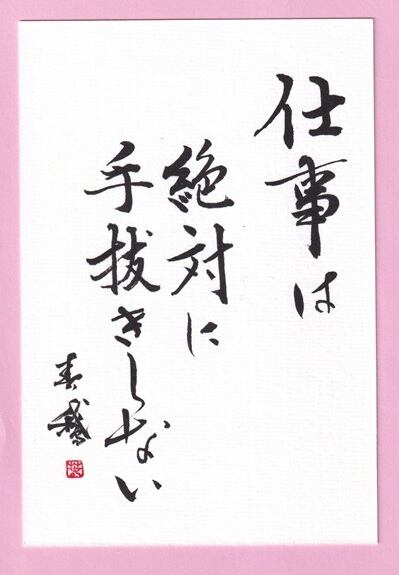 仕事は
絶対に
手抜きしない
春鵞